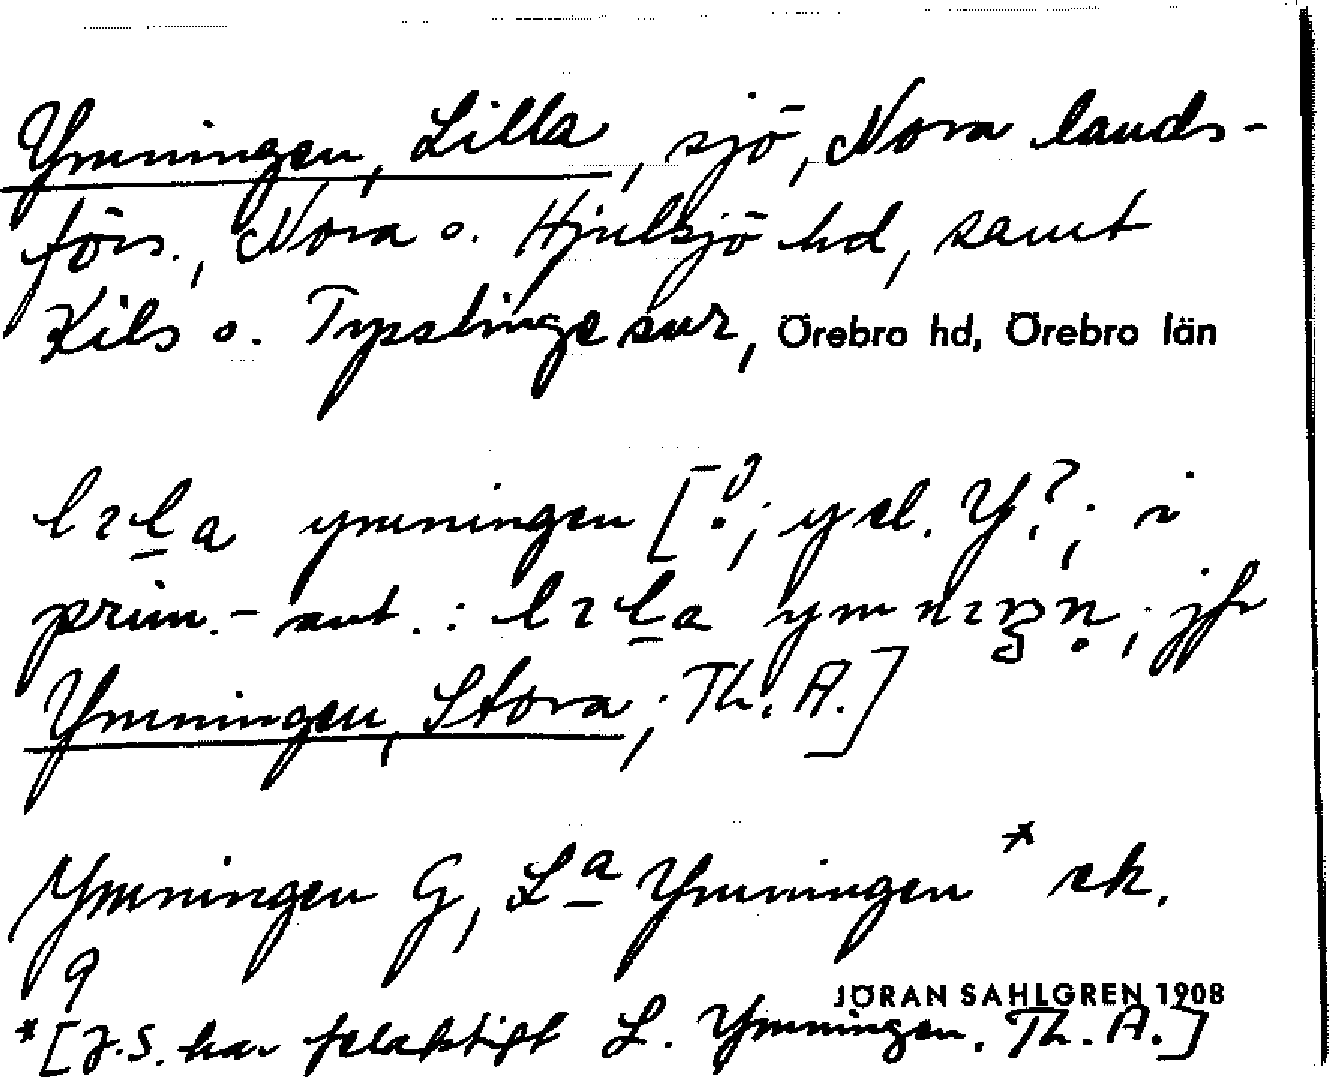 Ymningen, Lilla, sjö, Nora lands-
förs., Nora o. Hjulsjö hd, samt
Kils o. Tysslinge snr, Örebro hd, Örebro län
ymningen [?; y el. Y?; i
prim.-ant.: ; jfr
Ymningen, Stora; Th. A.]
Ymningen G, La Ymningen* ek.
9
JÖRAN SAHLGREN 1908
*[J.S. har felaktigt L. Ymningen. Th. A.]